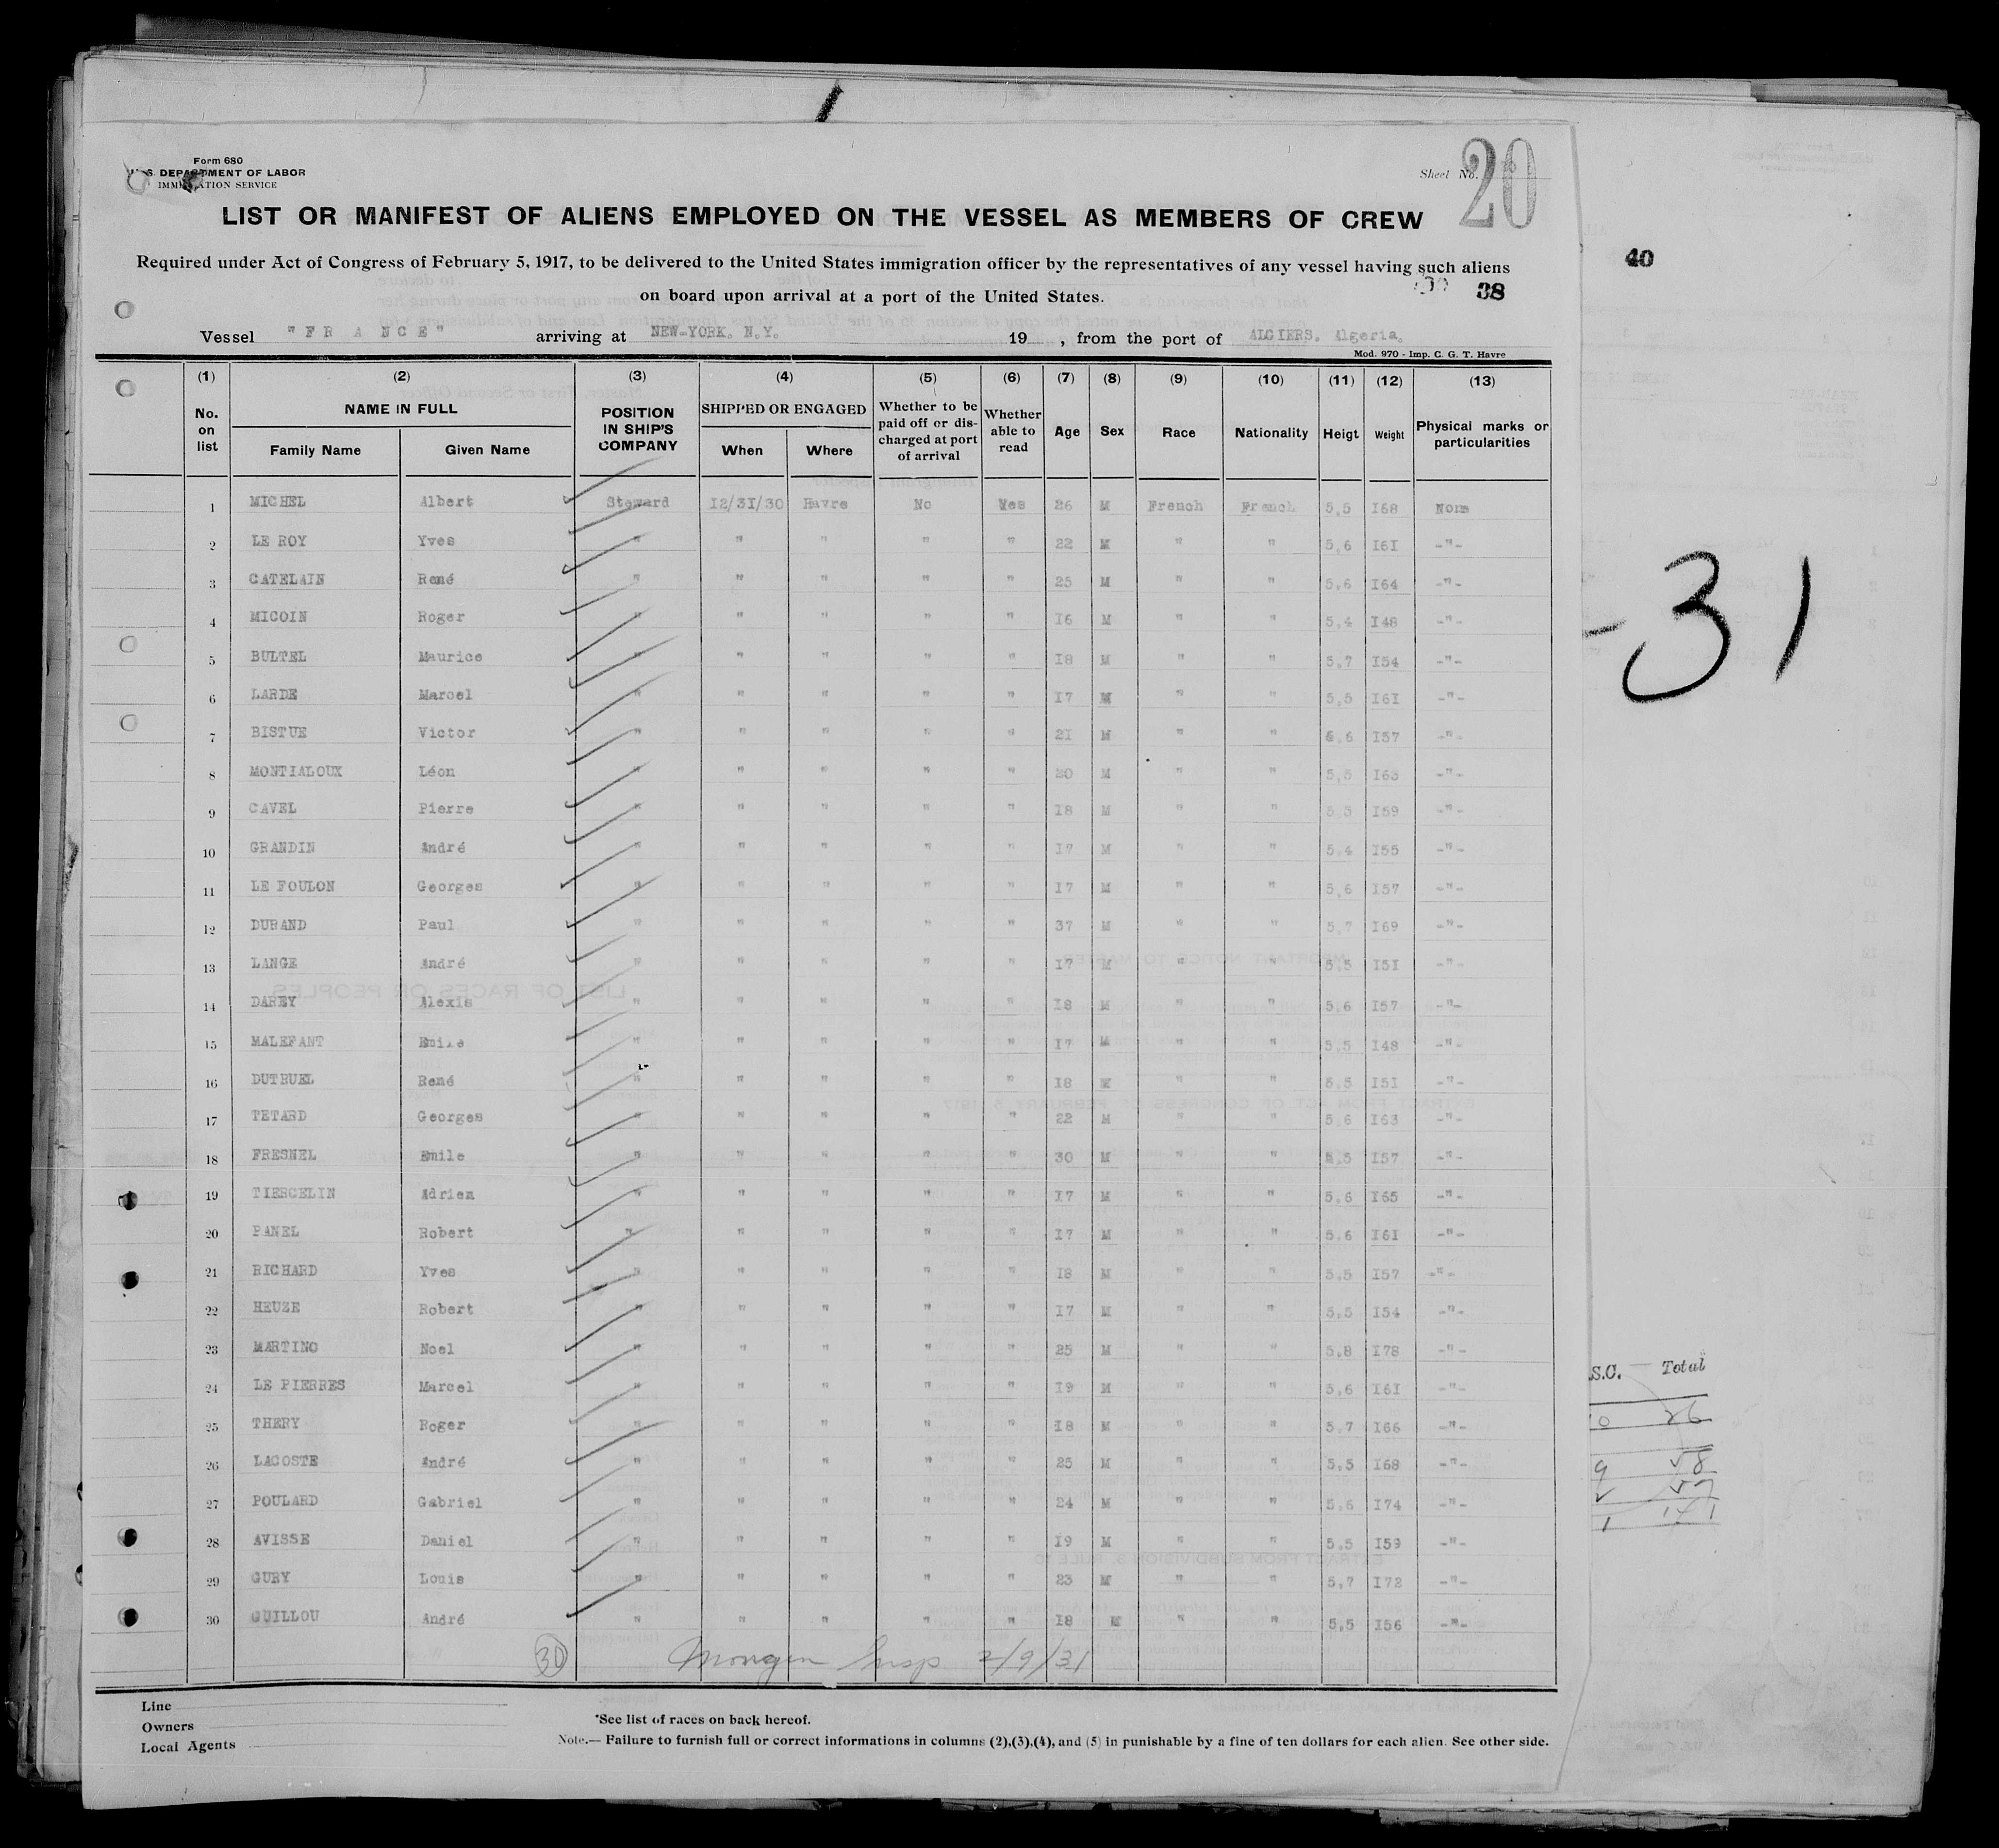 Form 680
U.S. DEPARTMENT OF LABOR
IMMIGRATION SERVICE
Sheet No. 20
LIST OR MANIFEST OF ALIENS EMPLOYED ON THE VESSEL AS MEMBERS OF CREW
Required under Act of Congress of February 5, 1917, to be delivered to the United States immigration officer by the representatives of any vessel having such aliens
on board upon arrival at a port of the United States.
38
40
Vessel "F R A N C E" arriving at NEW-YORK. N.Y. 19 , from the port of ALGIERS. Algeria.
Mod. 970 - Imp. C. G. T. Havre
(1) (2) (3) (4) (5) (6) (7) (8) (9) (10) (11) (12) (13)
No. on list NAME IN FULL Family Name Given Name POSITION IN SHIP'S COMPANY SHIPPED OR ENGAGED When Where Whether to be paid off or discharged at port of arrival Whether able to read Age Sex Race Nationality Heigt Weight Physical marks or particularities
1 MICHEL Albert Steward 12/31/30 Havre No Yes 26 M French French 5,5 168 None
2 LE ROY Yves " " " " " 22 M " " 5,6 161 -"-
3 CATELAIN René " " " " " 25 M " " 5,6 164 -"-
4 MICOIN Roger " " " " " 16 M " " 5,4 148 -"-
5 BULTEL Maurice " " " " " 18 M " " 5,7 154 -"-
6 LARDE Marcel " " " " " 17 M " " 5,5 161 -"-
7 BISTUE Victor " " " " " 21 M " " 5,6 157 -"-
8 MONTIALOUX Léon " " " " " 20 M " " 5,5 163 -"-
9 CAVEL Pierre " " " " " 18 M " " 5,5 159 -"-
10 GRANDIN André " " " " " 17 M " " 5,4 155 -"-
11 LE FOULON Georges " " " " " 17 M " " 5,6 157 -"-
12 DURAND Paul " " " " " 37 M " " 5,7 169 -"-
13 LANGE André " " " " " 17 M " " 5,5 151 -"-
14 DAREY Alexis " " " " " 18 M " " 5,6 157 -"-
15 MALEFANT Emile " " " " " 17 M " " 5,5 148 -"-
16 DUTRUEL René " " " " " 18 M " " 5,5 151 -"-
17 TETARD Georges " " " " " 22 M " " 5,6 163 -"-
18 FRESNEL Emile " " " " " 30 M " " 5,5 157 -"-
19 TIERCELIN Adrien " " " " " 17 M " " 5,6 165 -"-
20 PANEL Robert " " " " " 17 M " " 5,6 161 -"-
21 RICHARD Yves " " " " " 18 M " " 5,5 157 -"-
22 HEUZE Robert " " " " " 17 M " " 5,5 154 -"-
23 MARTINO Noel " " " " " 25 M " " 5,8 178 -"-
24 LE PIERRES Marcel " " " " " 19 M " " 5,6 161 -"-
25 THERY Roger " " " " " 18 M " " 5,7 166 -"-
26 LACOSTE André " " " " " 25 M " " 5,5 168 -"-
27 POULARD Gabriel " " " " " 24 M " " 5,6 174 -"-
28 AVISSE Daniel " " " " " 19 M " " 5,5 159 -"-
29 GUBY Louis " " " " " 23 M " " 5,7 172 -"-
30 GUILLOU André " " " " " 18 M " " 5,5 156 -"-
30 Insp 2/9/31
Line
Owners
Local Agents
*See list of races on back hereof.
Note.— Failure to furnish full or correct informations in columns (2),(3),(4), and (5) in punishable by a fine of ten dollars for each alien. See other side.
-31
.S.C. Total
26
9 58